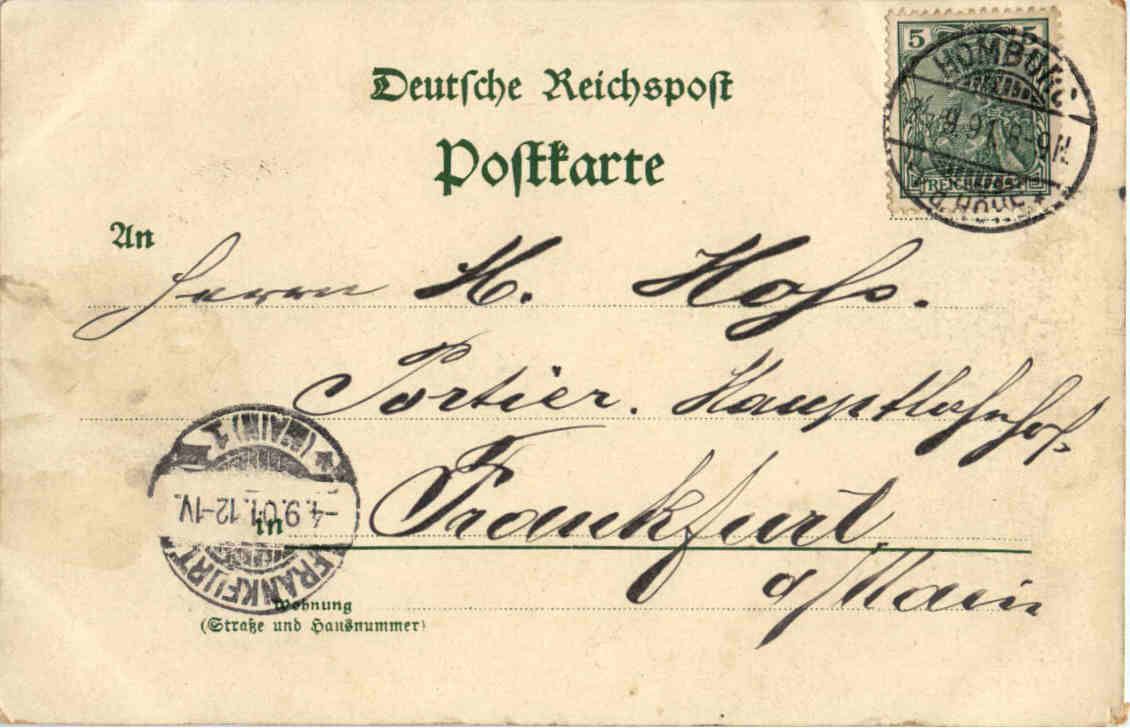 Deutsche Reichspost
Postkarte
5 5
REICHSPOST
HOMBURG
8-9N
v.d. HÖHE *
An
Herrn H. Hofs.
Portier. Hauptbahnhof.
in Frankfurt
a/Main
* (MAIN) 1
-4.9.01.12-1V.
FRANKFURT
Wohnung
(Straße und Hausnummer)